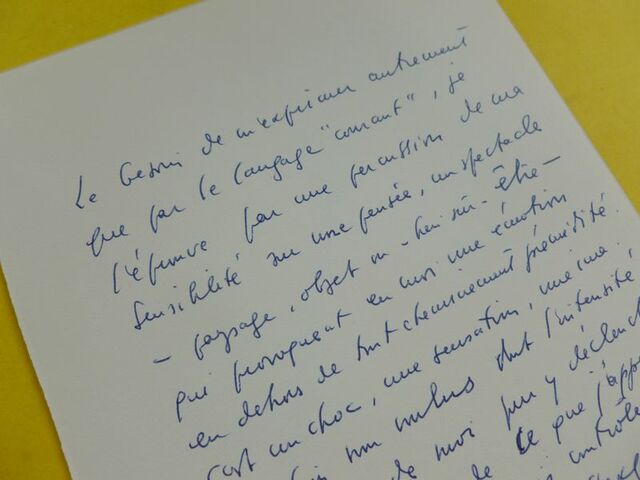 Le besoin de m'exprimer autrement
que par le langage "courant", je
l'éprouve par une percussion de ma
sensibilité sur une pensée, un spectacle
- paysage, objet ou bien sûr - être -
qui provoquent en moi une émotion
en dehors de tout cheminement prémédité.
C'est un choc, une sensation, une ima
non voulus dont l'intensité,
de moi pour y déclench
de ce que j'app
contrôle